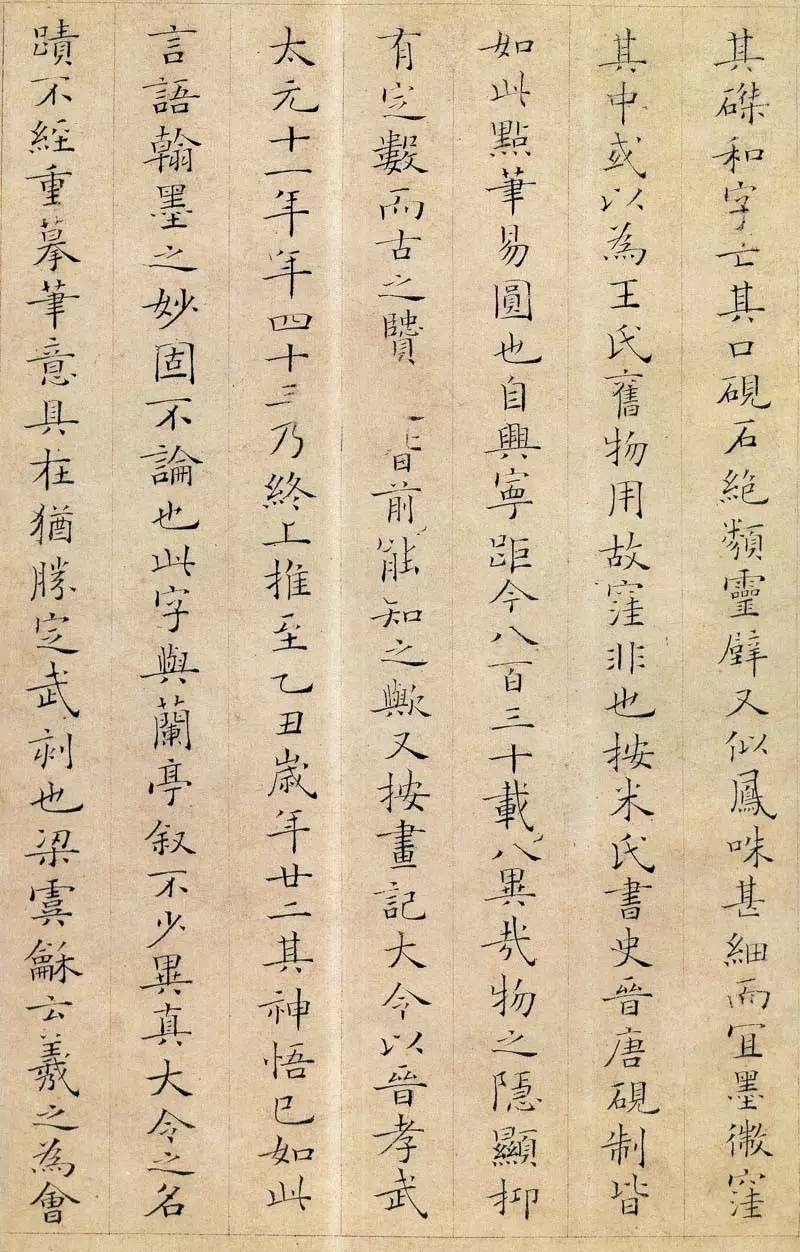 其磔和字亡其口硯石絶類靈璧又似鳳咮甚細而冝墨微窪
其中或以為王氏舊物用故窪非也按米氏書史晉唐硯制皆
如此點筆易圓也自興寧距今八百三十載八異哉物之隠顯抑
有定數而古之賢前能知之歟又按畫記大令以晉孝武
太元十一年年四十三乃終上推至乙丑歲年廿二其神悟已如此
言語翰墨之妙固不論也此字與蘭亭叙不少異真大令之名
蹟不經重摹筆意具在猶勝定武刻也梁虞龢云羲之為會